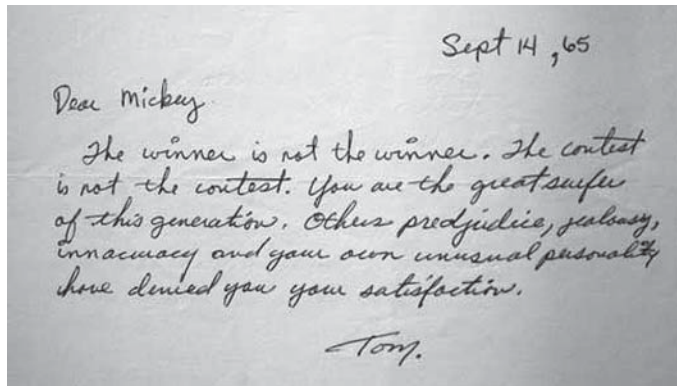 Sept 14, 65
Dear Mickey
The winner is not the winner. The contest
is not the contest. You are the great surfer
of this generation. Others predjudice, jealousy,
innacuracy and your own unusual personality
have denied you your satisfaction.
Tom.